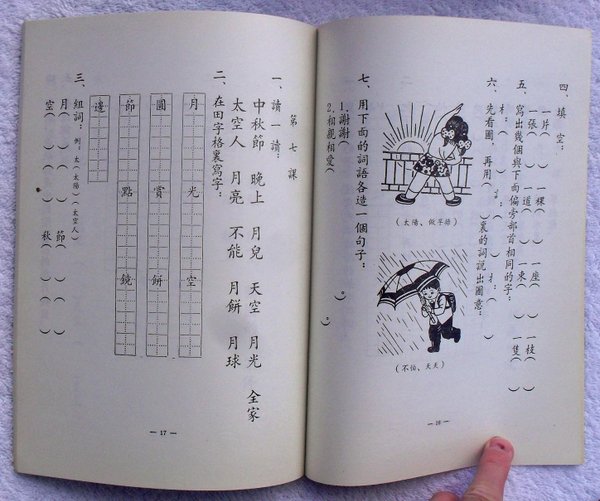 四、填空：
一片（ ） 一棵（ ） 一座（ ） 一枝（ ）
一張（ ） 一道（ ） 一束（ ） 一隻（ ）
五、寫出幾個與下面偏旁部首相同的字：
六、先看圖，再用（ ）裏的詞說出圖意：
（太陽、做早操）
（不怕、天天）
七、用下面的詞語各造一個句子：
1.謝謝（ 。）
2.相親相愛（ 。）
— 16 —
第七課
一、讀一讀：
中秋節 晚上 月兒 天空 月光 全家
太空人 月亮 不能 月餅 月球
二、在田字格裏寫字：
月 光 空
圓 賞 餅
節 點 鏡
邊
三、組詞：例：太（太陽）（太空人）
月（ ）（ ） 節（ ）（ ）
空（ ）（ ） 秋（ ）（ ）
— 17 —